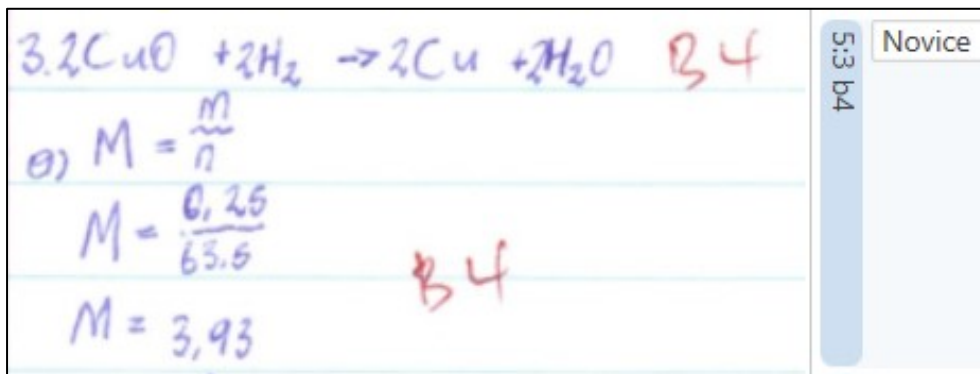 3.2CuO +2H₂ → 2Cu +2H₂O B4
a) M = m/n
M = 0,25/63.5
B4
M = 3,93
5:3 b4
Novice